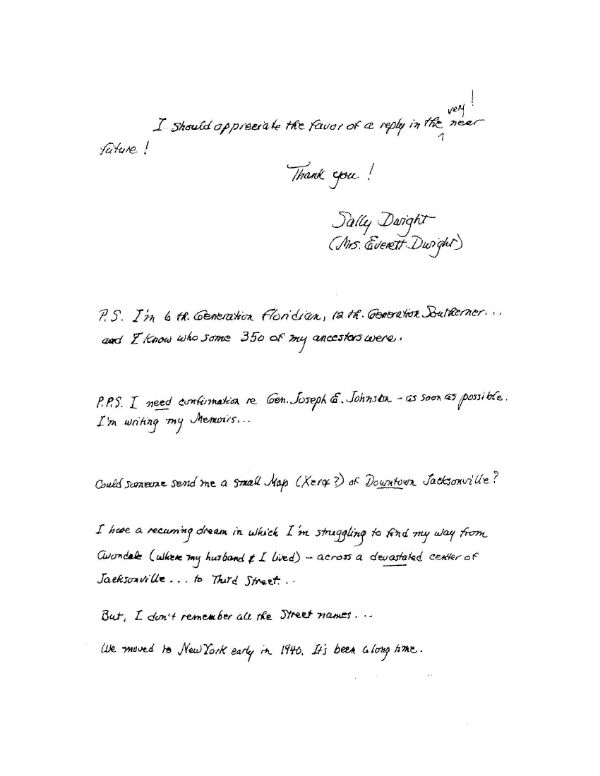 very!
I should appreciate the favor of a reply in the ^ near
future!
Thank you!
Sally Dwight
(Mrs. Everett Dwight)
P.S. I'm 6 th. Generation Floridian, 12 th. Generation Southerner...
and I know who some 350 of my ancestors were.
P.P.S. I need confirmation re Gen. Joseph E. Johnston - as soon as possible.
I'm writing my Memoirs...
Could someone send me a small Map (Xerox?) of Downtown Jacksonville?
I have a recurring dream in which I'm struggling to find my way from
Avondale (where my husband & I lived) - across a devastated center of
Jacksonville... to Third Street...
But, I don't remember all the Street names...
We moved to New York early in 1940. It's been a long time.